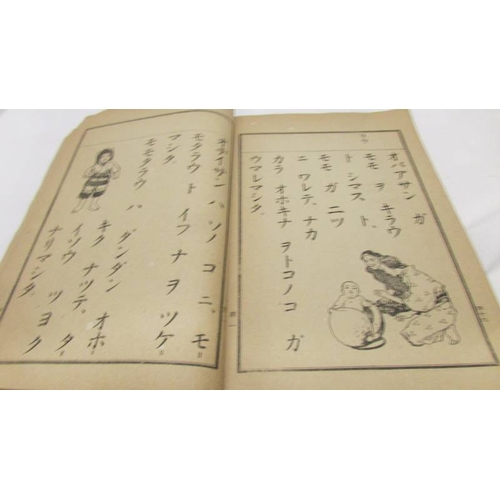 オバアサン ガ
モモ ヲ キラウ
ト シマス ト、
モモ ガ 二ツ
ニ ワレテ、ナカ
カラ オホキナ ヲトコノコ ガ
ウマレマシタ。
オヂイサン ハ ソノ コニ、モ
モタラウ ト イフ ナ ヲ ツケ
マシタ。
モモタラウ ハ ダンダン オホ
キク ナッテ、タ
イソウ ツヨク
ナリマシタ。